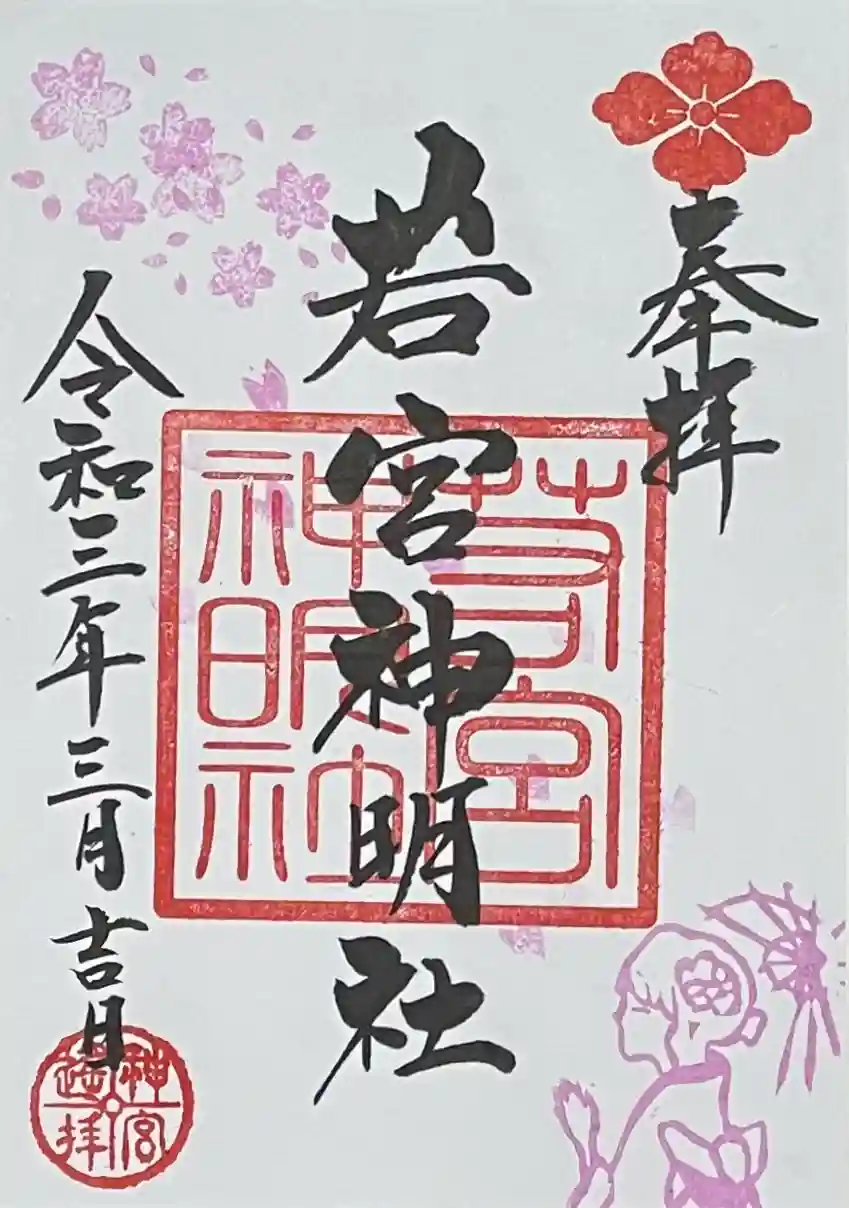 奉拝
若宮神明社
令和三年三月吉日
若宮
神明社
神宮
遥拝